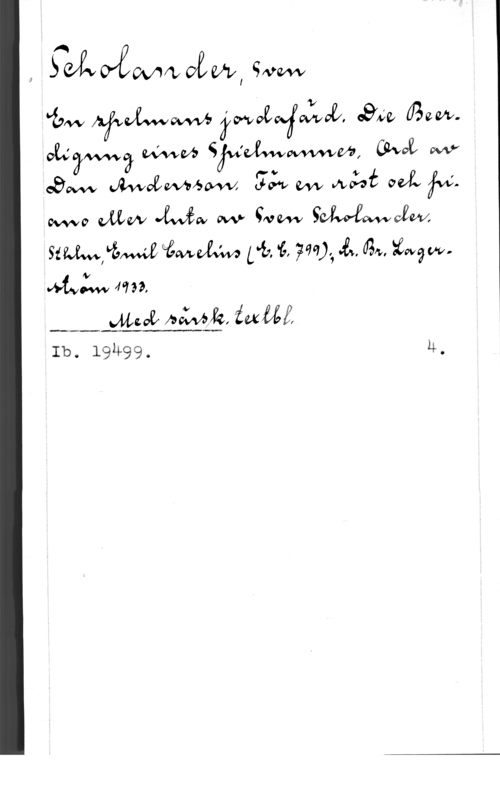 Scholander, Sven
En spelmans jordafärd. Die Beer-
digung eines Spielmannes. Ord av
Dan Andersson. För en röst och pi-
ano eller luta av Sven Scholander.
Sthlm, Emil Carelius (E. C. 799); tr. Br. Lager-
ström 1933.
Med särsk. textbl.
Ib. 19499. 4.